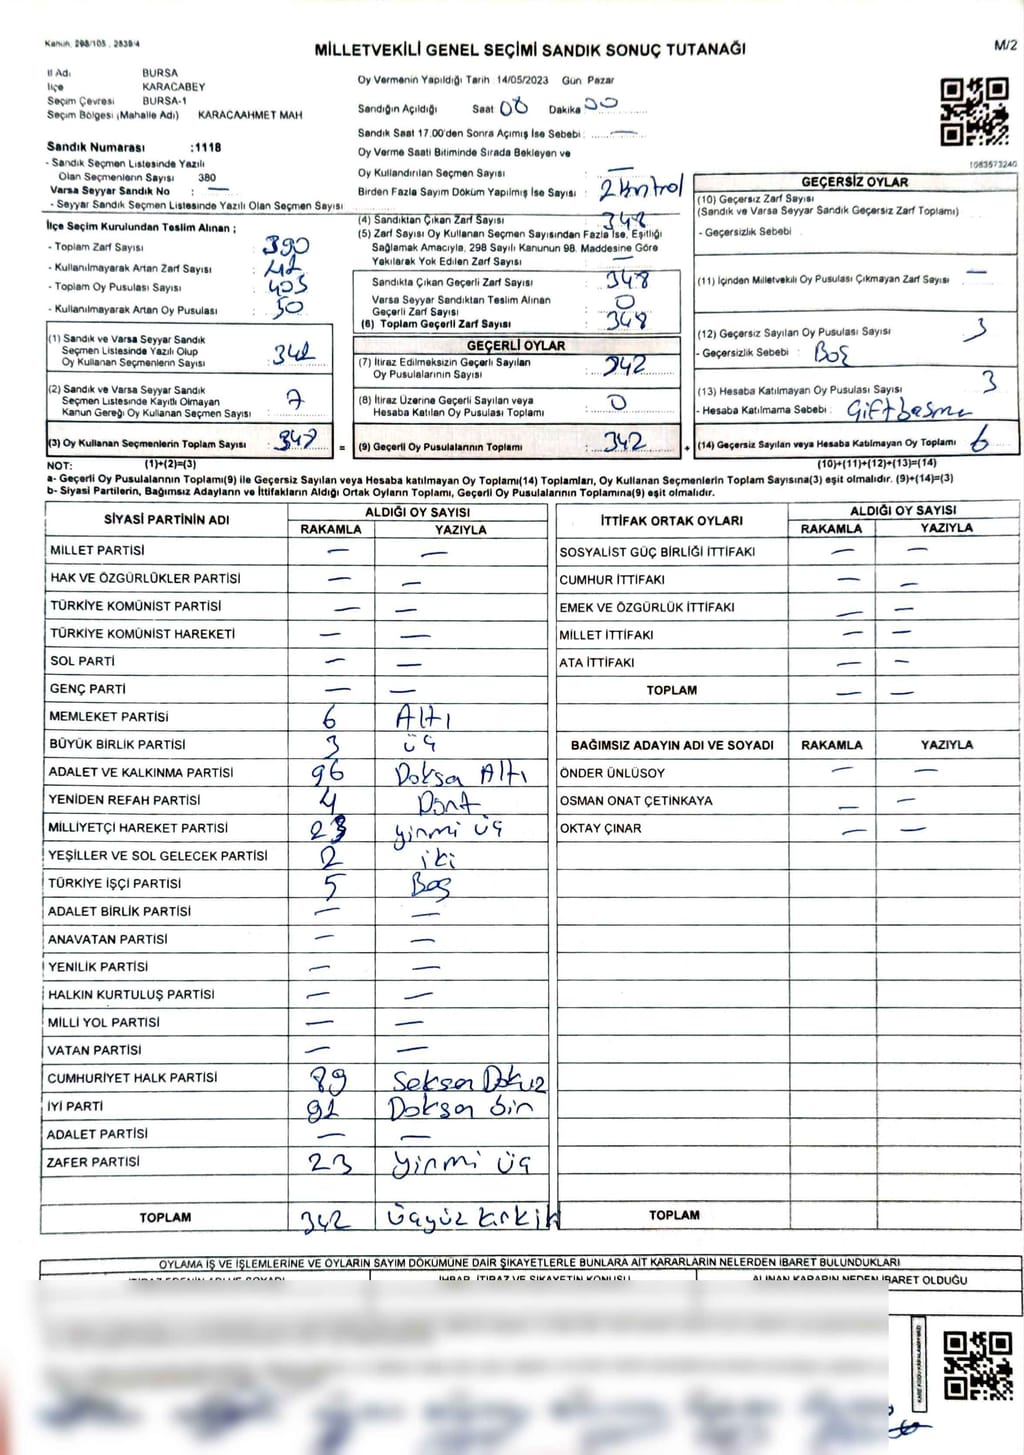 Kanun, 298/105, 2839/4
MİLLETVEKİLİ GENEL SEÇİMİ SANDIK SONUÇ TUTANAĞI
M/2
İl Adı BURSA
İlçe KARACABEY
Seçim Çevresi BURSA-1
Seçim Bölgesi (Mahalle Adı) KARACAAHMET MAH
Sandık Numarası :1118
- Sandık Seçmen Listesinde Yazılı
Olan Seçmenlerin Sayısı 380
Varsa Seyyar Sandık No : —
- Seyyar Sandık Seçmen Listesinde Yazılı Olan Seçmen Sayısı
Oy Vermenin Yapıldığı Tarih 14/05/2023 Gün Pazar
Sandığın Açıldığı Saat 08 Dakika 00
Sandık Saat 17.00'den Sonra Açımış İse Sebebi : —
Oy Verme Saati Bitiminde Sırada Bekleyen ve
Oy Kullandırılan Seçmen Sayısı : —
Birden Fazla Sayım Döküm Yapılmış İse Sayısı : 2 kontrol
1083573240
İlçe Seçim Kurulundan Teslim Alınan ;
- Toplam Zarf Sayısı : 390
- Kullanılmayarak Artan Zarf Sayısı : 42
- Toplam Oy Pusulası Sayısı : 405
- Kullanılmayarak Artan Oy Pusulası : 50
(1) Sandık ve Varsa Seyyar Sandık
Seçmen Listesinde Yazılı Olup
Oy Kullanan Seçmenlerin Sayısı :
(2) Sandık ve Varsa Seyyar Sandık
Seçmen Listesinde Kayıtlı Olmayan
Kanun Gereği Oy Kullanan Seçmen Sayısı : 7
(3) Oy Kullanan Seçmenlerin Toplam Sayısı :
(4) Sandıktan Çıkan Zarf Sayısı : 348
(5) Zarf Sayısı Oy Kullanan Seçmen Sayısından Fazla İse, Eşitliği
Sağlamak Amacıyla, 298 Sayılı Kanunun 98. Maddesine Göre
Yakılarak Yok Edilen Zarf Sayısı : —
Sandıkta Çıkan Geçerli Zarf Sayısı : 348
Varsa Seyyar Sandıktan Teslim Alınan
Geçerli Zarf Sayısı : 0
(6) Toplam Geçerli Zarf Sayısı : 348
GEÇERLİ OYLAR
(7) İtiraz Edilmeksizin Geçerli Sayılan
Oy Pusulalarının Sayısı : 342
(8) İtiraz Üzerine Geçerli Sayılan veya
Hesaba Katılan Oy Pusulası Toplamı : 0
= (9) Geçerli Oy Pusulalarının Toplamı : 342
GEÇERSİZ OYLAR
(10) Geçersiz Zarf Sayısı
(Sandık ve Varsa Seyyar Sandık Geçersiz Zarf Toplamı)
- Geçersizlik Sebebi
(11) İçinden Milletvekili Oy Pusulası Çıkmayan Zarf Sayısı —
(12) Geçersiz Sayılan Oy Pusulası Sayısı 3
- Geçersizlik Sebebi : Boş
(13) Hesaba Katılmayan Oy Pusulası Sayısı 3
- Hesaba Katılmama Sebebi : Çift basma
+ (14) Geçersiz Sayılan veya Hesaba Katılmayan Oy Toplamı 6
NOT: (1)+(2)=(3) (10)+(11)+(12)+(13)=(14)
a- Geçerli Oy Pusulalarının Toplamı(9) ile Geçersiz Sayılan veya Hesaba katılmayan Oy Toplamı(14) Toplamları, Oy Kullanan Seçmenlerin Toplam Sayısına(3) eşit olmalıdır. (9)+(14)=(3)
b- Siyasi Partilerin, Bağımsız Adayların ve İttifakların Aldığı Ortak Oyların Toplamı, Geçerli Oy Pusulalarının Toplamına(9) eşit olmalıdır.
SİYASİ PARTİNİN ADI ALDIĞI OY SAYISI
RAKAMLA YAZIYLA
MİLLET PARTİSİ — —
HAK VE ÖZGÜRLÜKLER PARTİSİ — —
TÜRKİYE KOMÜNİST PARTİSİ — —
TÜRKİYE KOMÜNİST HAREKETİ — —
SOL PARTİ — —
GENÇ PARTİ — —
MEMLEKET PARTİSİ 6 Altı
BÜYÜK BİRLİK PARTİSİ 3 üç
ADALET VE KALKINMA PARTİSİ 96 Doksan Altı
YENİDEN REFAH PARTİSİ 4 Dört
MİLLİYETÇİ HAREKET PARTİSİ 23 yirmi üç
YEŞİLLER VE SOL GELECEK PARTİSİ 2 iki
TÜRKİYE İŞÇİ PARTİSİ 5 Beş
ADALET BİRLİK PARTİSİ — —
ANAVATAN PARTİSİ — —
YENİLİK PARTİSİ — —
HALKIN KURTULUŞ PARTİSİ — —
MİLLİ YOL PARTİSİ — —
VATAN PARTİSİ — —
CUMHURİYET HALK PARTİSİ 89 Seksen Dokuz
İYİ PARTİ 91 Doksan bir
ADALET PARTİSİ — —
ZAFER PARTİSİ 23 yirmi üç
TOPLAM 342 üçyüz kırk iki
İTTİFAK ORTAK OYLARI ALDIĞI OY SAYISI
RAKAMLA YAZIYLA
SOSYALİST GÜÇ BİRLİĞİ İTTİFAKI — —
CUMHUR İTTİFAKI — —
EMEK VE ÖZGÜRLÜK İTTİFAKI — —
MİLLET İTTİFAKI — —
ATA İTTİFAKI — —
TOPLAM — —
BAĞIMSIZ ADAYIN ADI VE SOYADI RAKAMLA YAZIYLA
ÖNDER ÜNLÜSOY — —
OSMAN ONAT ÇETİNKAYA — —
OKTAY ÇINAR — —
TOPLAM
OYLAMA İŞ VE İŞLEMLERİNE VE OYLARIN SAYIM DÖKÜMÜNE DAİR ŞİKAYETLERLE BUNLARA AİT KARARLARIN NELERDEN İBARET BULUNDUKLARI
İHBAR, İTİRAZ VE ŞİKAYETİN KONUSU
ALINAN KARARIN NEDEN İBARET OLDUĞU